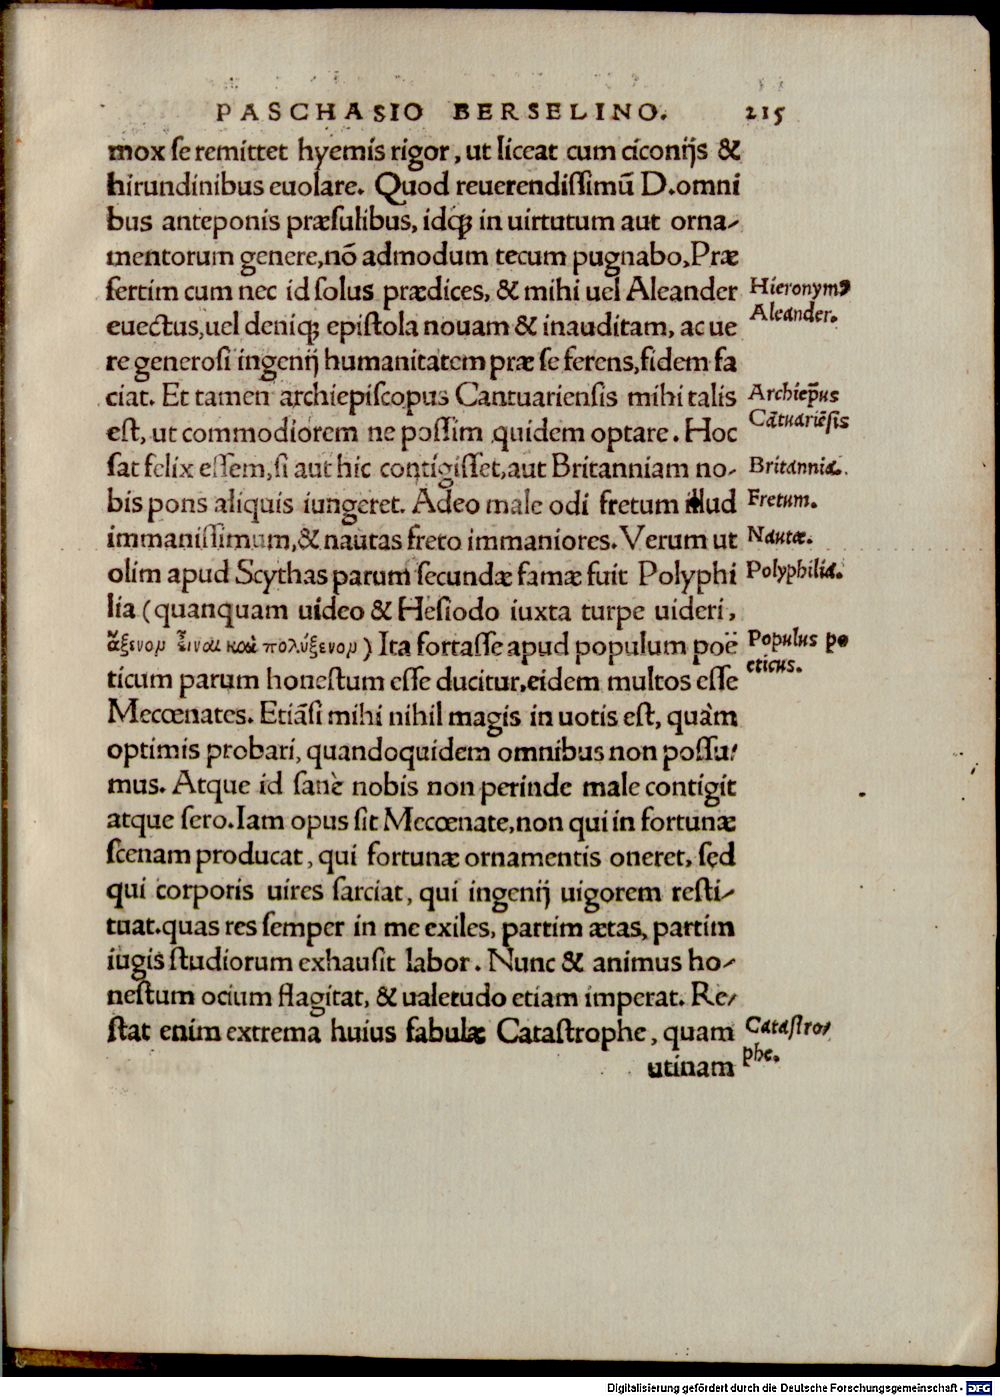 PASCHASIO BERSELINO. 215
mox ſe remittet hyemis rigor, ut liceat cum ciconijs &
hirundinibus euolare. Quod reuerendiſſimū D.omni
bus anteponis præſulibus, idqꝫ in uirtutum aut orna-
mentorum genere,nō admodum tecum pugnabo,Præ
ſertim cum nec id ſolus prædices, & mihi uel Aleander
Hieronymꝰ
Aleander.
euectus,uel deniqꝫ epiſtola nouam & inauditam, ac ue
re generoſi ingenij humanitatem præ ſe ferens,fidem fa
ciat. Et tamen archiepiſcopus Cantuarienſis mihi talis
Archiep̄us
Cātuariēſis
eſt, ut commodiorem ne poſſim quidem optare. Hoc
ſat felix eſſem,ſi aut hic contigiſſet,aut Britanniam no-
Britannia.
bis pons aliquis iungeret. Adeo male odi fretum illud
Fretum.
immaniſſimum,& nautas freto immaniores. Verum ut
Nautæ.
olim apud Scythas parum ſecundæ famæ fuit Polyphi
Polyphilia.
lia (quanquam uideo & Heſiodo iuxta turpe uideri,
ἄξενομ εἶναι καὶ πολύξενομ) Ita fortaſſe apud populum poë
Populus po
eticus.
ticum parum honeſtum eſſe ducitur,eidem multos eſſe
Mecœnates. Etiāſi mihi nihil magis in uotis eſt, quàm
optimis probari, quandoquidem omnibus non poſſu-
mus. Atque id ſanè nobis non perinde male contigit
atque ſero.Iam opus ſit Mecœnate,non qui in fortunæ
ſcenam producat, qui fortunæ ornamentis oneret, ſed
qui corporis uires ſarciat, qui ingenij uigorem reſti-
tuat.quas res ſemper in me exiles, partim ætas, partim
iugis ſtudiorum exhauſit labor. Nunc & animus ho-
neſtum ocium flagitat, & ualetudo etiam imperat. Re-
ſtat enim extrema huius fabulæ Cataſtrophe, quam
Cataſtro-
phe.
utinam
Digitalisierung gefördert durch die Deutsche Forschungsgemeinschaft - DFG